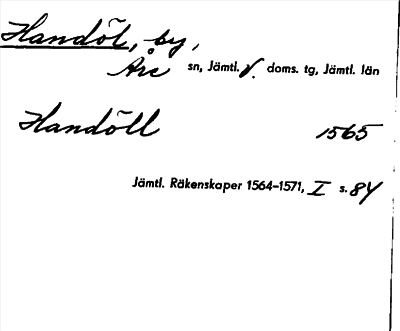 Handöl, by,
Åre sn, Jämtl. v. doms. tg, Jämtl. län
Handöll 1565
Jämtl. Räkenskaper 1564-1571, I s. 84